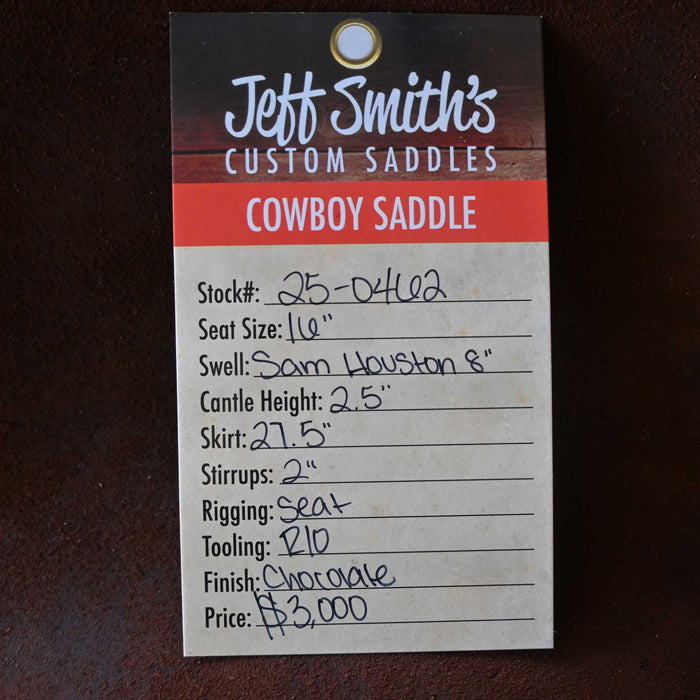 Jeff Smith's
CUSTOM SADDLES
COWBOY SADDLE
Stock#: 25-0462
Seat Size: 16"
Swell: Sam Houston 8"
Cantle Height: 2.5"
Skirt: 27.5"
Stirrups: 2"
Rigging: Seat
Tooling: R10
Finish: Chocolate
Price: $3,000